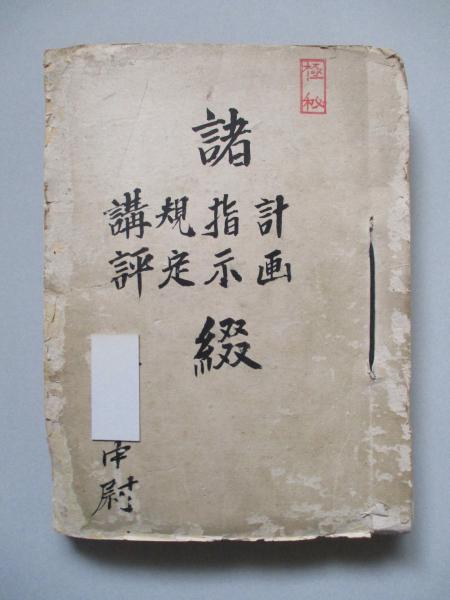 極秘
諸
計画
指示
規定
講評
綴
中尉